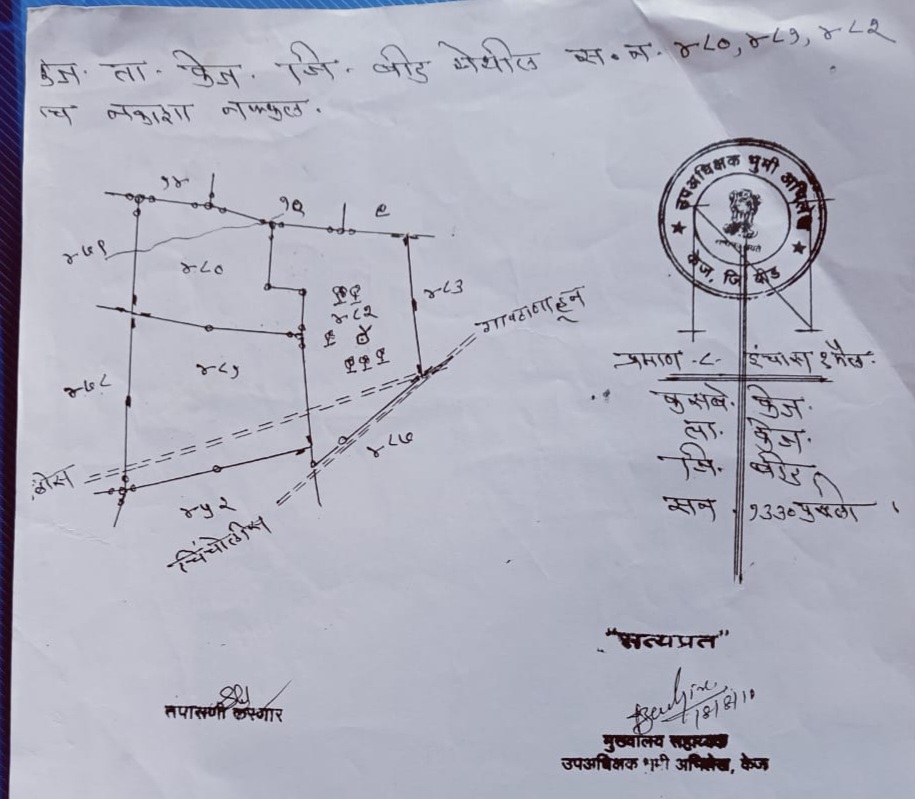 केज. ता. केज. जि. बीड येथील स.न. ४८०, ४८१, ४८२
चा नकाशा नक्कल.
१४
१०
९
४७९
४८०
४८२
४८३
गावठाणाहून
४८१
४७८
४८७
४५२
चिंचोलीस
उपअधिक्षक भुमी अभिलेख
केज. जि बीड
प्रमाण -८- इंचास १ मैल.
कसबे. केज.
ता. केज.
जि. बीड
सन १३३० फुसली
"सत्यप्रत"
तपासणी करणार
मुख्यालय सहाय्यक
उपअधिक्षक भूमी अभिलेख, केज